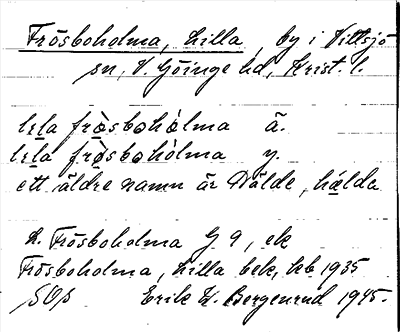 Frösboholma, Lilla, by i Vittsjö
sn, V. Göinge hd, Krist. l.
lɛla frøsbohòlma ä.
lɛla frøsbohòlma y.
ett äldre namn är Hälde, hælda
L. Frösboholma G 9, ek
Frösboholma, Lilla bek, hkb 1935
SOs Erik W. Bergenrud 1945.